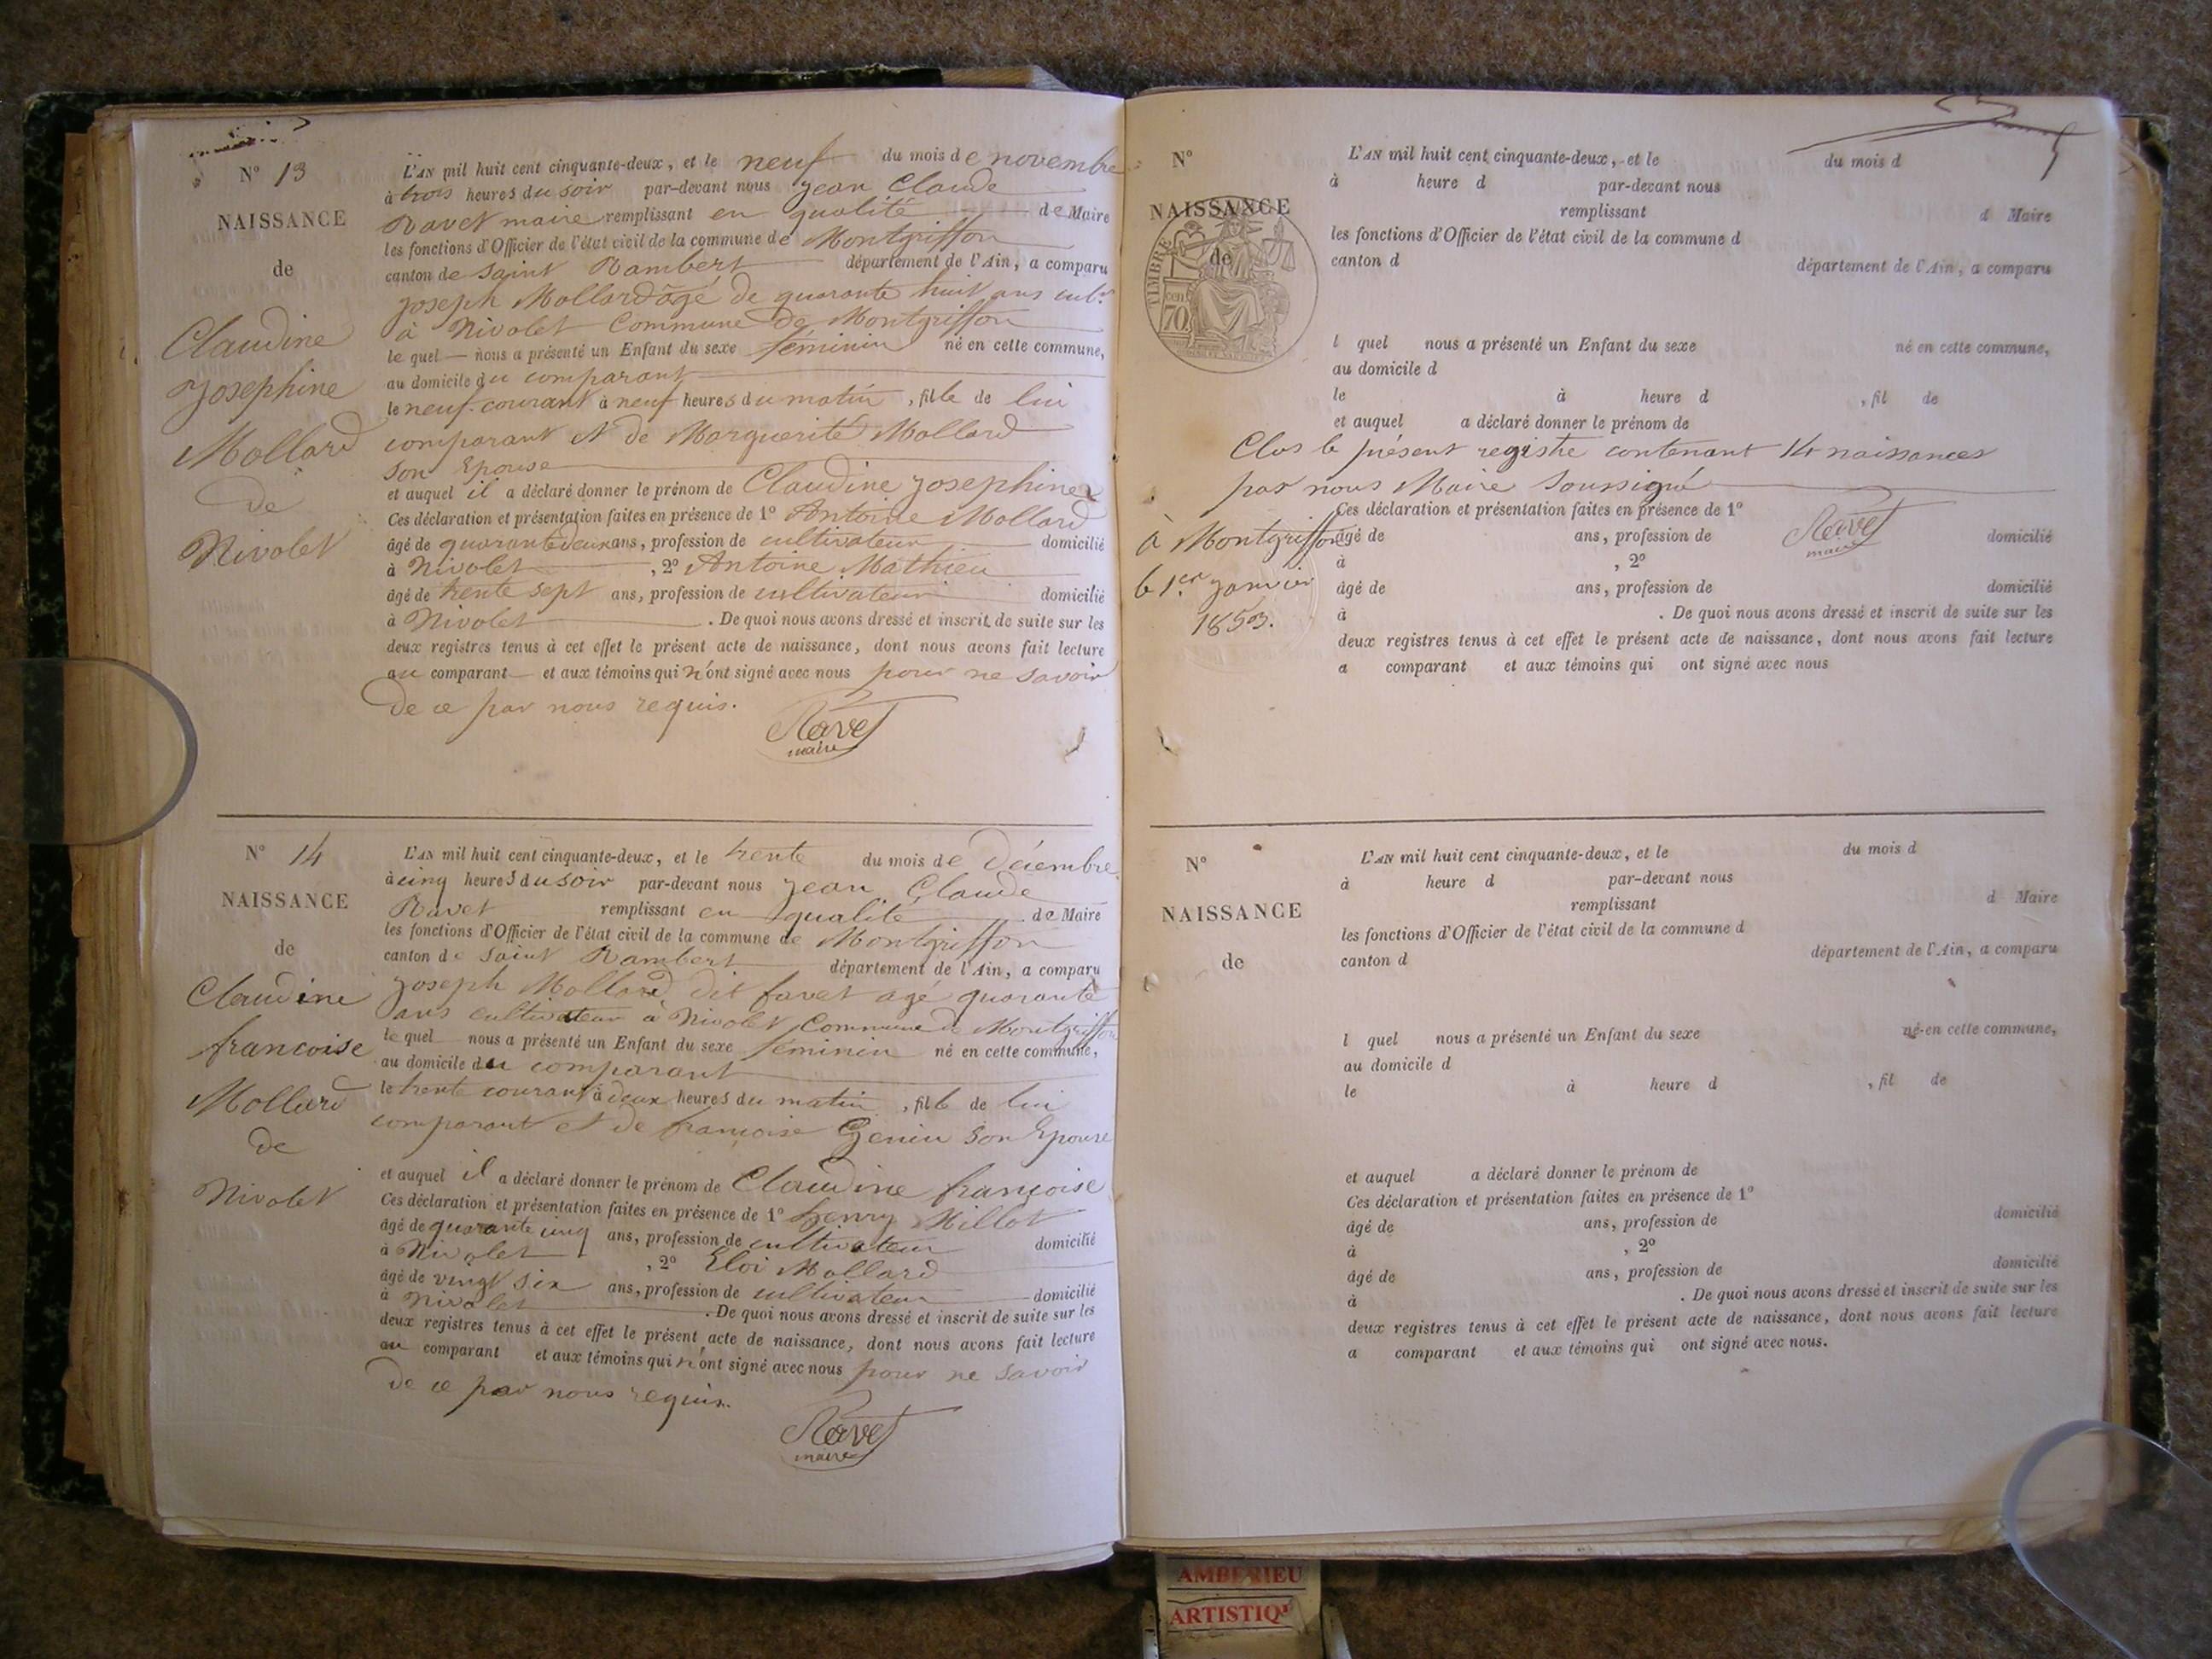 N° 13
NAISSANCE
de
Claudine
Josephine
Mollard
de
Nivolet
L'AN mil huit cent cinquante-deux, et le neuf du mois de novembre
à trois heures du soir par-devant nous Jean Claude
Ravet maire remplissant en qualité de Maire
les fonctions d'Officier de l'état civil de la commune de Montgriffon
canton de Saint Rambert département de l'Ain, a comparu
Joseph Mollard âgé de quarante huit ans cultr
à Nivolet Commune de Montgriffon
le quel nous a présenté un Enfant du sexe féminin né en cette commune,
au domicile du comparant
le neuf courant à neuf heures du matin, fille de lui
comparant et de Marguerite Mollard
son Epouse
et auquel il a déclaré donner le prénom de Claudine Josephine
Ces déclaration et présentation faites en présence de 1° Antoine Mollard
âgé de quarante deux ans, profession de cultivateur domicilié
à Nivolet, 2° Antoine Mathieu
âgé de trente sept ans, profession de cultivateur domicilié
à Nivolet. De quoi nous avons dressé et inscrit de suite sur les
deux registres tenus à cet effet le présent acte de naissance, dont nous avons fait lecture
au comparant et aux témoins qui n'ont signé avec nous pour ne savoir
de ce par nous requis.
Ravet
maire
N° 14
NAISSANCE
de
Claudine
francoise
Mollard
de
Nivolet
L'AN mil huit cent cinquante-deux, et le trente du mois de Décembre
à cinq heures du soir par-devant nous Jean Claude
Ravet remplissant en qualité de Maire
les fonctions d'Officier de l'état civil de la commune de Montgriffon
canton de Saint Rambert département de l'Ain, a comparu
Joseph Mollard dit favet agé quarante
ans cultivateur à Nivolet Commune de Montgriffon
le quel nous a présenté un Enfant du sexe féminin né en cette commune,
au domicile du comparant
le trente courant à deux heures du matin, fille de lui
comparant et de françoise Genin son Epouse
et auquel il a déclaré donner le prénom de Claudine françoise
Ces déclaration et présentation faites en présence de 1° henry Millot
âgé de quarante cinq ans, profession de cultivateur domicilié
à Nivolet, 2° Eloi Mollard
âgé de vingt six ans, profession de cultivateur domicilié
à Nivolet. De quoi nous avons dressé et inscrit de suite sur les
deux registres tenus à cet effet le présent acte de naissance, dont nous avons fait lecture
au comparant et aux témoins qui n'ont signé avec nous pour ne savoir
de ce par nous requis.
Ravet
maire
N°
NAISSANCE
de
TIMBRE
70 cen.
L'AN mil huit cent cinquante-deux, et le du mois d
à heure d par-devant nous
remplissant d Maire
les fonctions d'Officier de l'état civil de la commune d
canton d département de l'Ain, a comparu
l quel nous a présenté un Enfant du sexe né en cette commune,
au domicile d
le à heure d, fil de
et auquel a déclaré donner le prénom de
Clos le présent registre contenant 14 naissances
par nous Maire Soussigné
Ces déclaration et présentation faites en présence de 1°
à Montgriffon âgé de ans, profession de Ravet domicilié
maire
à, 2°
le 1er. Janvier âgé de ans, profession de domicilié
1853. à. De quoi nous avons dressé et inscrit de suite sur les
deux registres tenus à cet effet le présent acte de naissance, dont nous avons fait lecture
a comparant et aux témoins qui ont signé avec nous
N°
NAISSANCE
de
L'AN mil huit cent cinquante-deux, et le du mois d
à heure d par-devant nous
remplissant d Maire
les fonctions d'Officier de l'état civil de la commune d
canton d département de l'Ain, a comparu
l quel nous a présenté un Enfant du sexe né en cette commune,
au domicile d
le à heure d, fil de
et auquel a déclaré donner le prénom de
Ces déclaration et présentation faites en présence de 1°
âgé de ans, profession de domicilié
à, 2°
âgé de ans, profession de domicilié
à. De quoi nous avons dressé et inscrit de suite sur les
deux registres tenus à cet effet le présent acte de naissance, dont nous avons fait lecture
a comparant et aux témoins qui ont signé avec nous.
AMBERIEU
ARTISTIQU